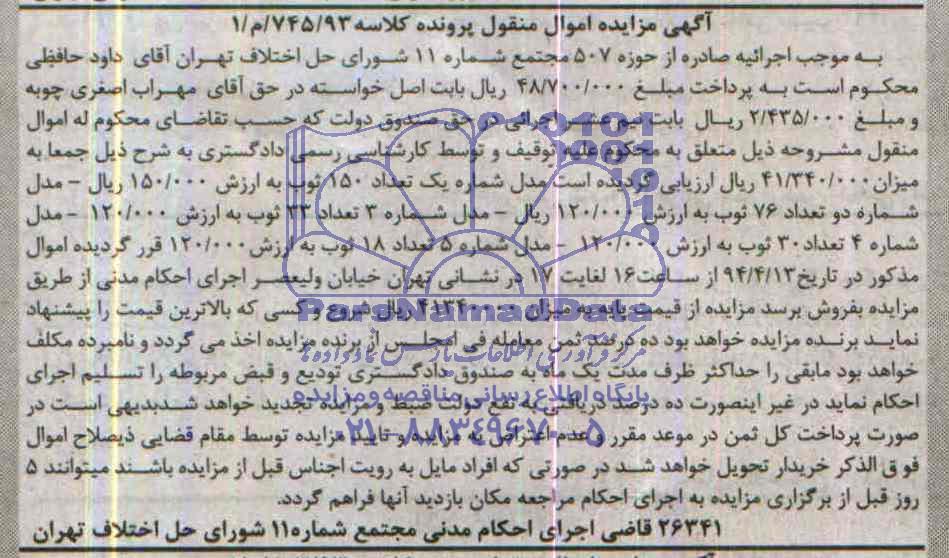 آگهی مزایده اموال منقول پرونده کلاسه ۷۴۵/۹۳/م/۱
به موجب اجرائیه صادره از حوزه ۵۰۷ مجتمع شماره ۱۱ شورای حل اختلاف تهران آقای داود حافظی
محکوم است به پرداخت مبلغ ۴۸/۷۰۰/۰۰۰ ریال بابت اصل خواسته در حق آقای مهراب اصغری چوبه
و مبلغ ۲/۴۳۵/۰۰۰ ریال بابت نیم عشر اجرائی در حق صندوق دولت که حسب تقاضای محکوم له اموال
منقول مشروحه ذیل متعلق به محکوم علیه توقیف و توسط کارشناسی رسمی دادگستری به شرح ذیل جمعا به
میزان ۴۱/۳۴۰/۰۰۰ ریال ارزیابی گردیده است مدل شماره یک تعداد ۱۵۰ ثوب به ارزش ۱۵۰/۰۰۰ ریال – مدل
شماره دو تعداد ۷۶ ثوب به ارزش ۱۲۰/۰۰۰ ریال – مدل شماره ۳ تعداد ۲۲ ثوب به ارزش ۱۲۰/۰۰۰ – مدل
شماره ۴ تعداد ۳۰ ثوب به ارزش ۱۲۰/۰۰۰ – مدل شماره ۵ تعداد ۱۸ ثوب به ارزش ۱۲۰/۰۰۰ قرر گردیده اموال
مذکور در تاریخ ۹۴/۴/۱۳ از ساعت ۱۶ لغایت ۱۷ در نشانی تهران خیابان ولیعصر اجرای احکام مدنی از طریق
مزایده بفروش برسد مزایده از قیمت پایه به میزان ۴۱۳۴۰۰۰۰ ریال شروع و کسی که بالاترین قیمت را پیشنهاد
نماید برنده مزایده خواهد بود ده درصد ثمن معامله فی المجلس از برنده مزایده اخذ می گردد و نامبرده مکلف
خواهد بود مابقی را حداکثر ظرف مدت یک ماه به صندوق دادگستری تودیع و قبض مربوطه را تسلیم اجرای
احکام نماید در غیر اینصورت ده درصد دریافتی به نفع دولت ضبط و مزایده تجدید خواهد شدبدیهی است در
صورت پرداخت کل ثمن در موعد مقرر و عدم اعتراض به مزایده و تایید مزایده توسط مقام قضایی ذیصلاح اموال
فوق الذکر خریدار تحویل خواهد شد در صورتی که افراد مایل به رویت اجناس قبل از مزایده باشند میتوانند ۵
روز قبل از برگزاری مزایده به اجرای احکام مراجعه مکان بازدید آنها فراهم گردد.
۲۶۳۴۱ قاضی اجرای احکام مدنی مجتمع شماره۱۱ شورای حل اختلاف تهران
ParsNamadData
مرکز فرآوری اطلاعات پارس نماد داده ها
پایگاه اطلاع رسانی مناقصه و مزایده
۰۲۱-۸۸۳۴۹۶۷۰-۵